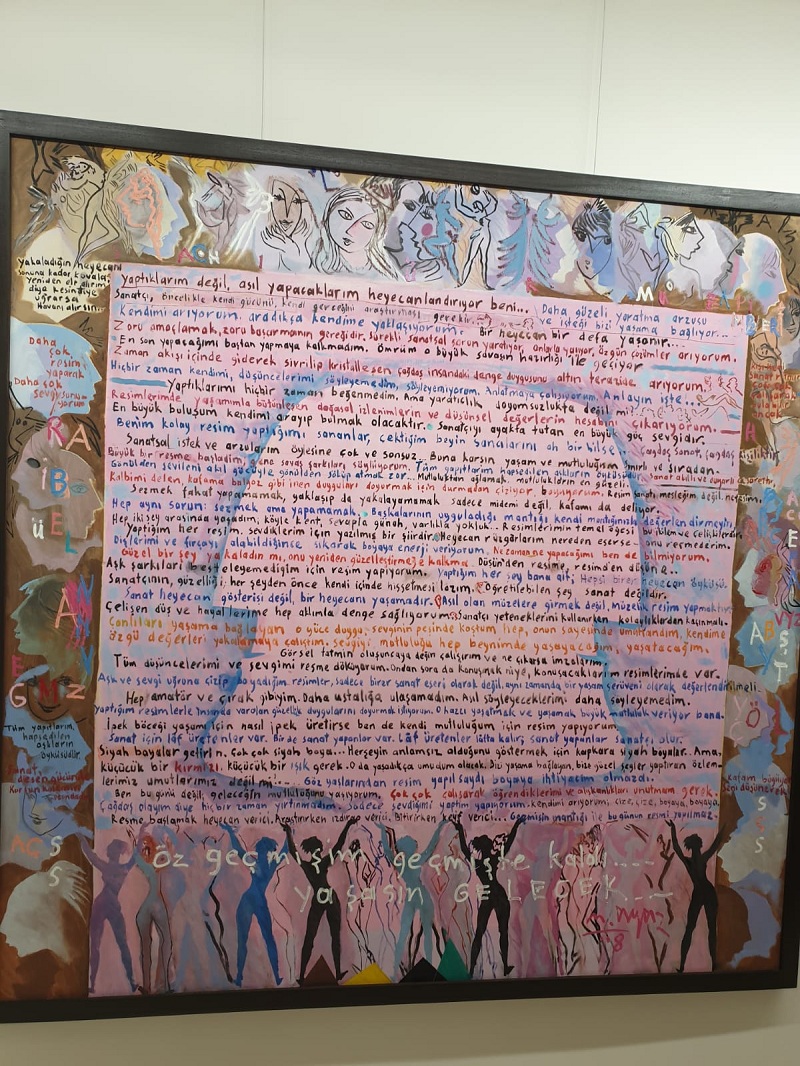 yaptıklarım değil, asıl yapacaklarım heyecanlandırıyor beni...
Sanatçı, öncelikle kendi gücünü, kendi gerçeğini araştırması gerekir.
Daha güzeli yaratma arzusu
ve isteği bizi yaşama bağlıyor...
Kendimi arıyorum, aradıkça kendime yaklaşıyorum.
Bir heyecan bir defa yaşanır...
Zoru amaçlamak, zoru başarmanın gereğidir. Sürekli sanatsal sorun yaratıyor, onlarla yaşıyor, özgün çözümler arıyorum.
En son yapacağımı baştan yapmaya kalkmadım. Ömrüm o büyük savaşın hazırlığı ile geçiyor
Zaman akışı içinde giderek sivrilip kristalleşen çağdaş insandaki denge duygusunu altın terazide arıyorum.
Hiçbir zaman kendimi, düşüncelerimi söyleyemedim, söyleyemiyorum. Anlatmaya çalışıyorum. Anlayın işte...
Yaptıklarımı hiçbir zaman beğenmedim. Ama yaratıcılık doyumsuzlukta değil mi?
Resimlerimde yaşamımla bütünleşen doğasal izlenimlerin ve düşünsel değerlerin hesabını çıkarıyorum.
En büyük buluşum kendimi arayıp bulmak olacaktır. Sanatçıyı ayakta tutan en büyük güç sevgidir.
Benim kolay resim yaptığımı sananlar, çektiğim beyin sancılarını ah bir bilse
Sanatsal istek ve arzularım öylesine çok ve sonsuz. Buna karşın yaşam ve mutluluğum sınırlı ve sıradan.
Büyük bir resme başladım, yine savaş şarkıları söylüyorum. Tüm yapıtlarım hapsedilen aşkların öyküsüdür.
Gönülden sevileni akıl gücüyle gönülden söküp atmak zor... Mutluluktan ağlamak mutlulukların en güzeli.
Kalbimi delen, kafama balyoz gibi inen duyguları doyurmak için durmadan çiziyor, boyuyorum. Resim sanatı mesleğim değil, nefesim.
Sezmek fakat yapamamak, yaklaşıp da yakalayamamak sadece midemi değil kafamı da deliyor.
Hep aynı sorun: sezmek ama yapamamak. Başkalarının uyguladığı mantığı kendi mantığınızla değerlendirmeyin.
Hep iki şey arasında yaşadım, köyle kent, sevapla günah, varlıkla yokluk... Resimlerimin temel öğesi bu ikilem ve çelişkilerdir.
Yaptığım her resim, sevdiklerim için yazılmış bir şiirdir. Heyecan rüzgârlarım nereden eserse... onu resmederim.
Dişlerimi ve fırçayı alabildiğince sıkarak boyaya enerji veriyorum. Ne zaman ne yapacağımı ben de bilmiyorum.
Güzel bir şey yakaladın mı, onu yeniden güzelleştirmeğe kalkma. Düşün'den resme, resimden düşün'e..
Aşk şarkıları besteleyemediğim için resim yapıyorum. Yaptığım her şey bana ait; Hepsi birer heyecan öyküsü.
Sanatçının, güzelliği; her şeyden önce kendi içinde hissetmesi lazım. Öğretilebilen şey sanat değildir.
Sanat heyecan gösterisi değil, bir heyecanı yaşamadır. Asıl olan müzelere girmek değil, müzelik resim yapmaktır.
Çelişen düş ve hayallerime hep aklımla denge sağlıyorum. Sanatçı yeteneklerini kullanırken kolaylıklardan kaçınmalı.
Canlıları yaşama bağlayan o yüce duygu, sevginin peşinde koştum hep, onun sayesinde umutlandım, kendime
özgü değerleri yakalamaya çalıştım. Sevgiyi, mutluluğu hep beynimde yaşayacağım, yaşatacağım.
Görsel tatmin oluşuncaya değin çalışırım ve ne çıkarsa imzalarım.
Tüm düşüncelerimi ve sevgimi resme döküyorum. Ondan sonra da konuşmak niye, konuşacaklarım resimlerimde var.
Aşk ve sevgi uğruna çizip boyadığım resimler, sadece birer sanat eseri olarak değil, aynı zamanda bir yaşam serüveni olarak değerlendirilmeli.
Hep amatör ve çırak gibiyim. Daha ustalığa ulaşamadım. Asıl söyleyeceklerimi daha söyleyemedim.
yaptığım resimlerle insanda varolan güzellik duygularını doyurmak istiyorum. O hazzı yaşatmak ve yaşamak büyük mutluluk veriyor bana.
İpek böceği yaşamı için nasıl ipek üretirse ben de kendi mutluluğum için resim yapıyorum.
Sanat için lâf üretenler var. Bir de sanat yapanlar var. Lâf üretenler lâfta kalır, sanat yapanlar sanatçı olur.
Siyah boyalar getirin. Çok çok siyah boya... Herşeyin anlamsız olduğunu göstermek için kapkara siyah boyalar. Ama,
küçücük bir kırmızı, küçücük bir ışık gerek. O da yaşadıkça umudum olacak. Bizi yaşama bağlayan, bize güzel şeyler yaptıran özlem-
lerimiz umutlarımız değil mi?... Göz yaşlarından resim yapılsaydı boyaya ihtiyacım olmazdı.
Ben bu günün değil, geleceğin mutluluğunu yaşıyorum. Çok çok çalışarak öğrendiklerimi ve alışkanlıkları unutmam gerek.
Çağdaş olayım diye hiç bir zaman yırtınmadım. Sadece sevdiğimi yaptım yapıyorum. Kendimi arıyorum; çize, çize, boyaya, boyaya.
Resme başlamak heyecan verici. Araştırırken ızdırap verici. Bitirirken keyif verici... Geçmişin mantığı ile bu günün resmi yapılmaz.
öz geçmişim geçmişte kaldı....
yaşasın GELECEK...
yakaladığın heyecanı
sonuna kadar kovala,
yeniden ele alırım
diye kesintiye
uğrarsa
Havanı alırsın.
Daha
çok
resim
yaparak
Daha çok
sevgi sunu-
yorum
Tüm yapıtlarım,
hapsedilen
aşkların
öyküsüdür.